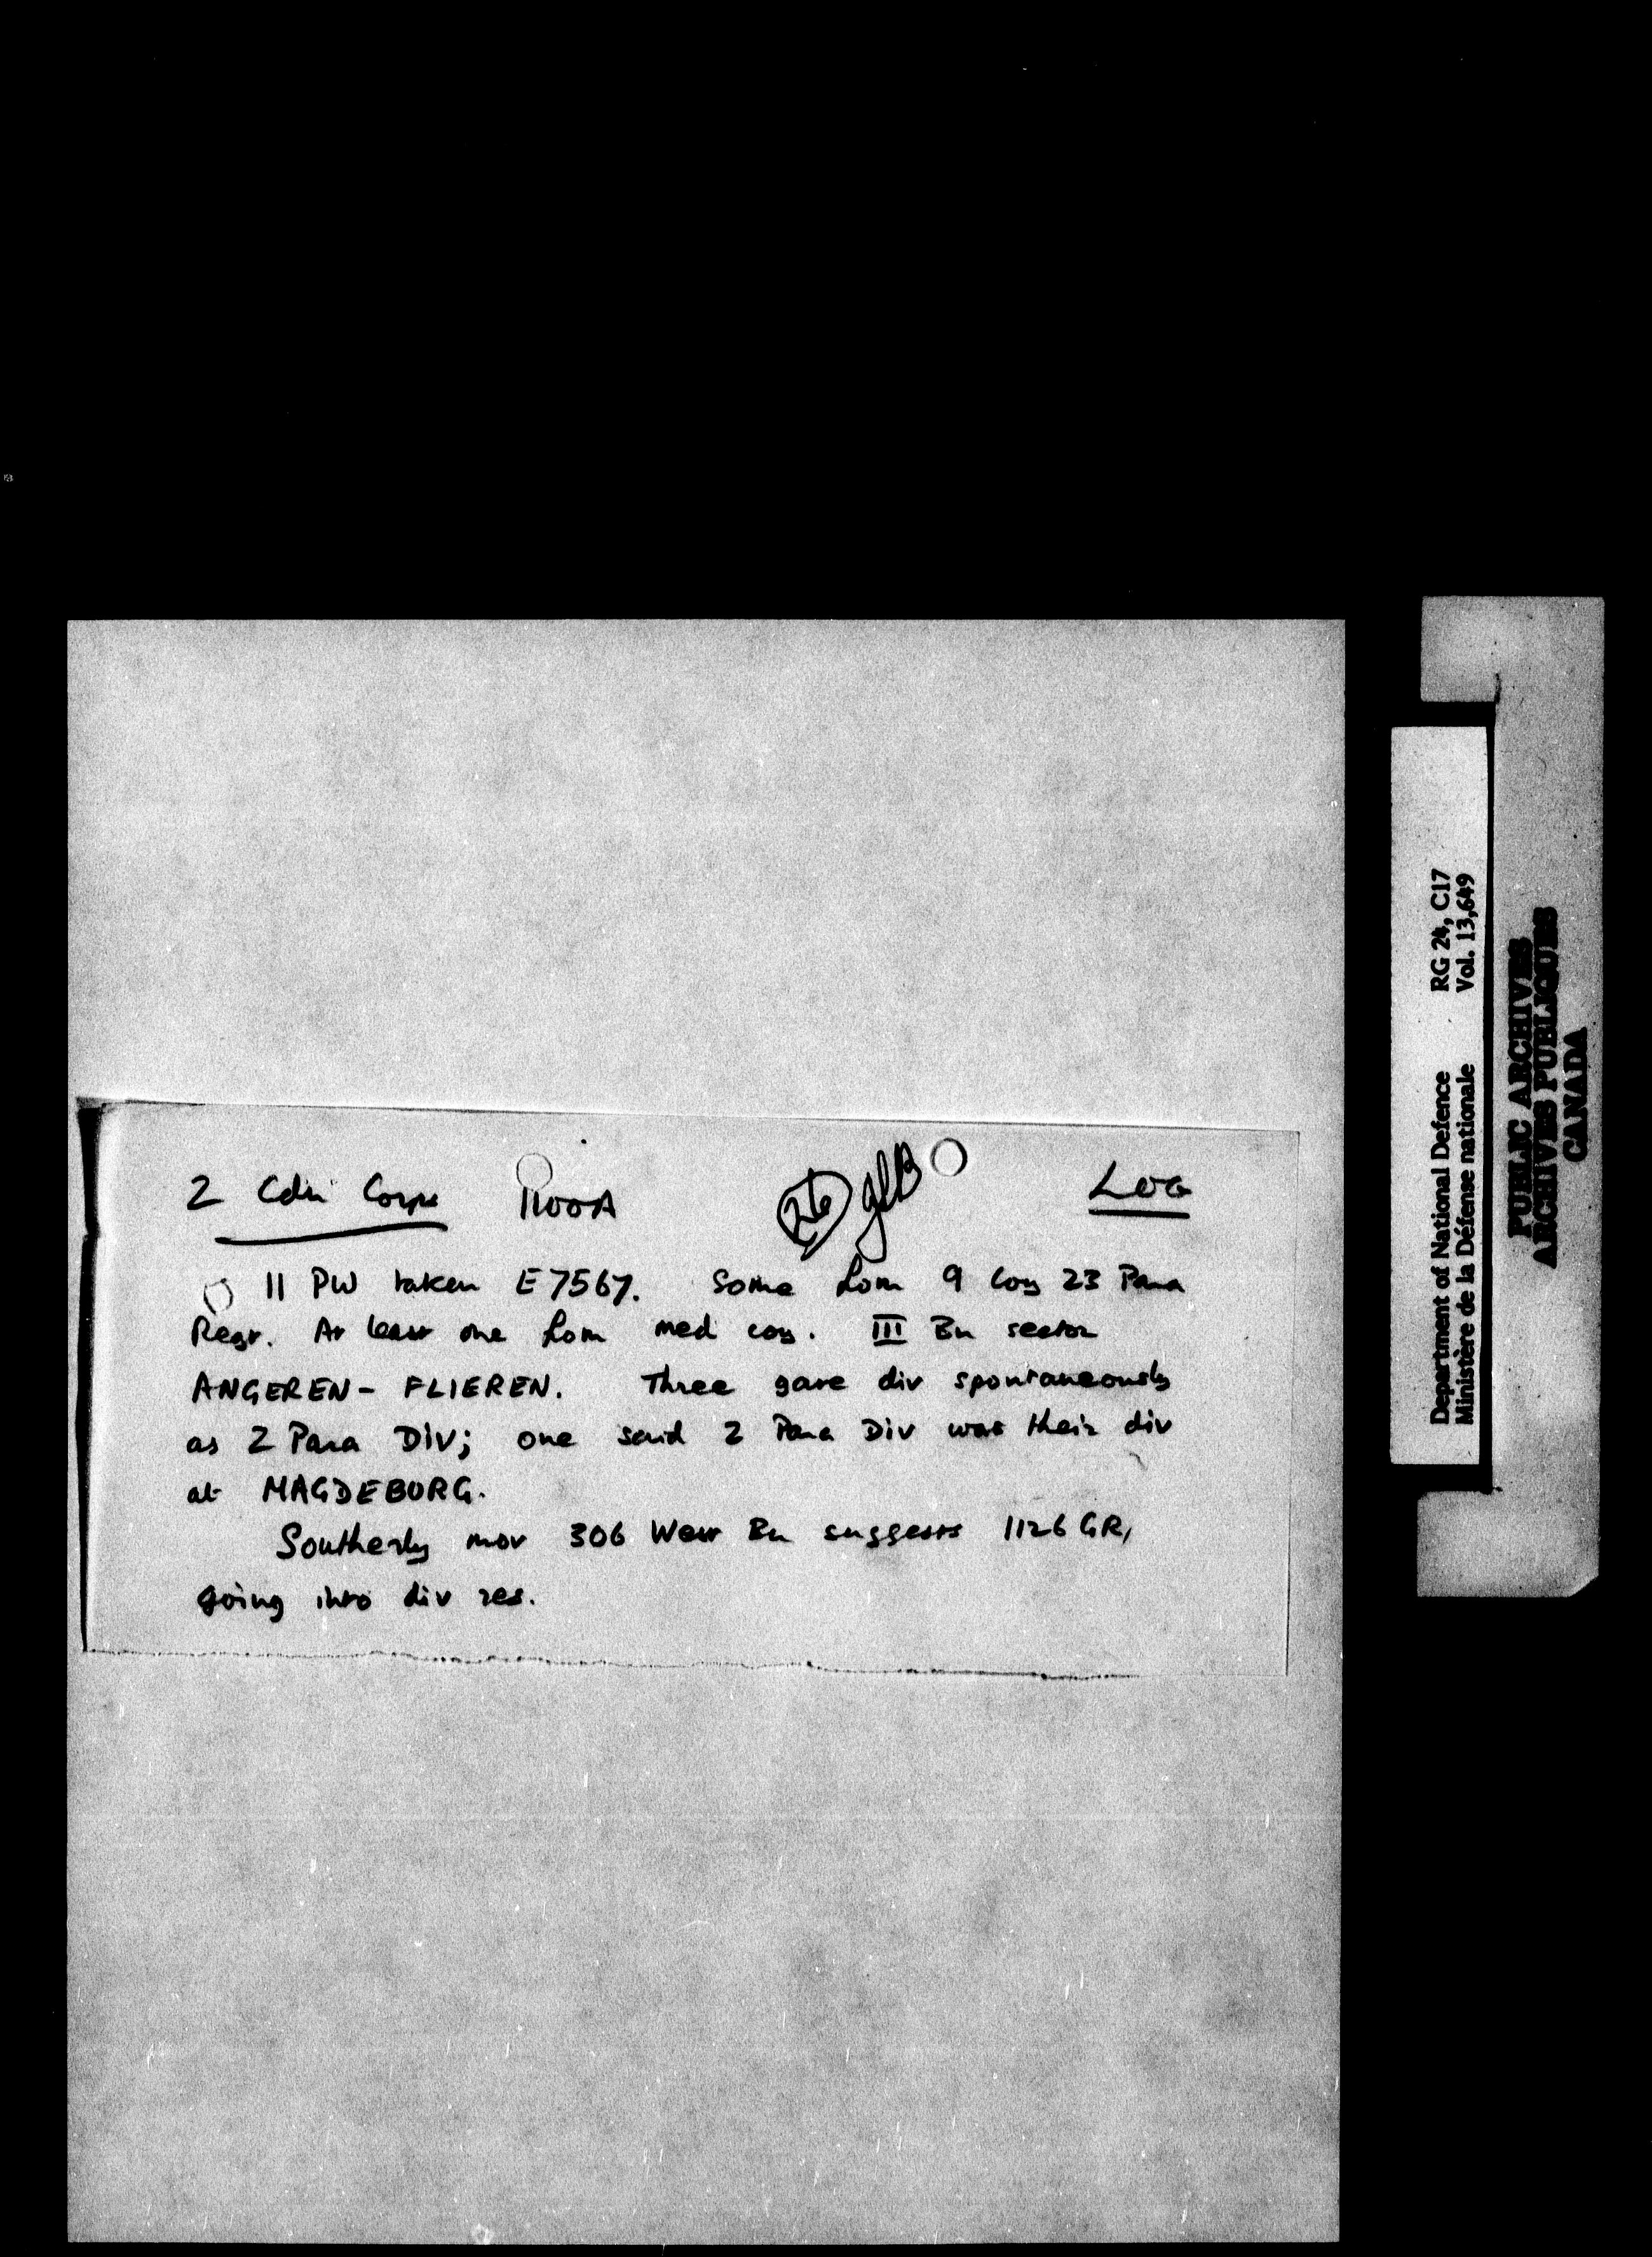 2 Cdn Corps 1100A 26 glB LOG
11 PW taken E 7567. Some from 9 Coy 23 Para
Regt. At least one from med coy. III Bn sector
ANGEREN - FLIEREN. Three gave div spontaneously
as 2 Para Div; one said 2 Para Div was their div
at MAGDEBURG.
Southerly mov 306 West Bn suggests 1126 GR,
going into div res.
Department of National Defence RG 24, C17
Ministère de la Défense nationale Vol. 13,649
PUBLIC ARCHIVES
ARCHIVES PUBLIQUES
CANADA